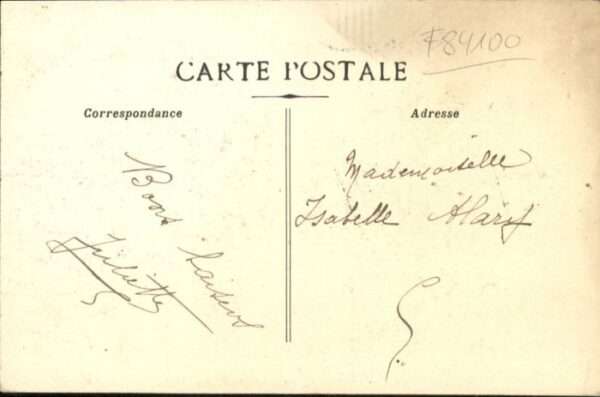 F84100
CARTE POSTALE
Correspondance
Adresse
Bons baisers
Juliette
Mademoiselle
Isabelle Alary